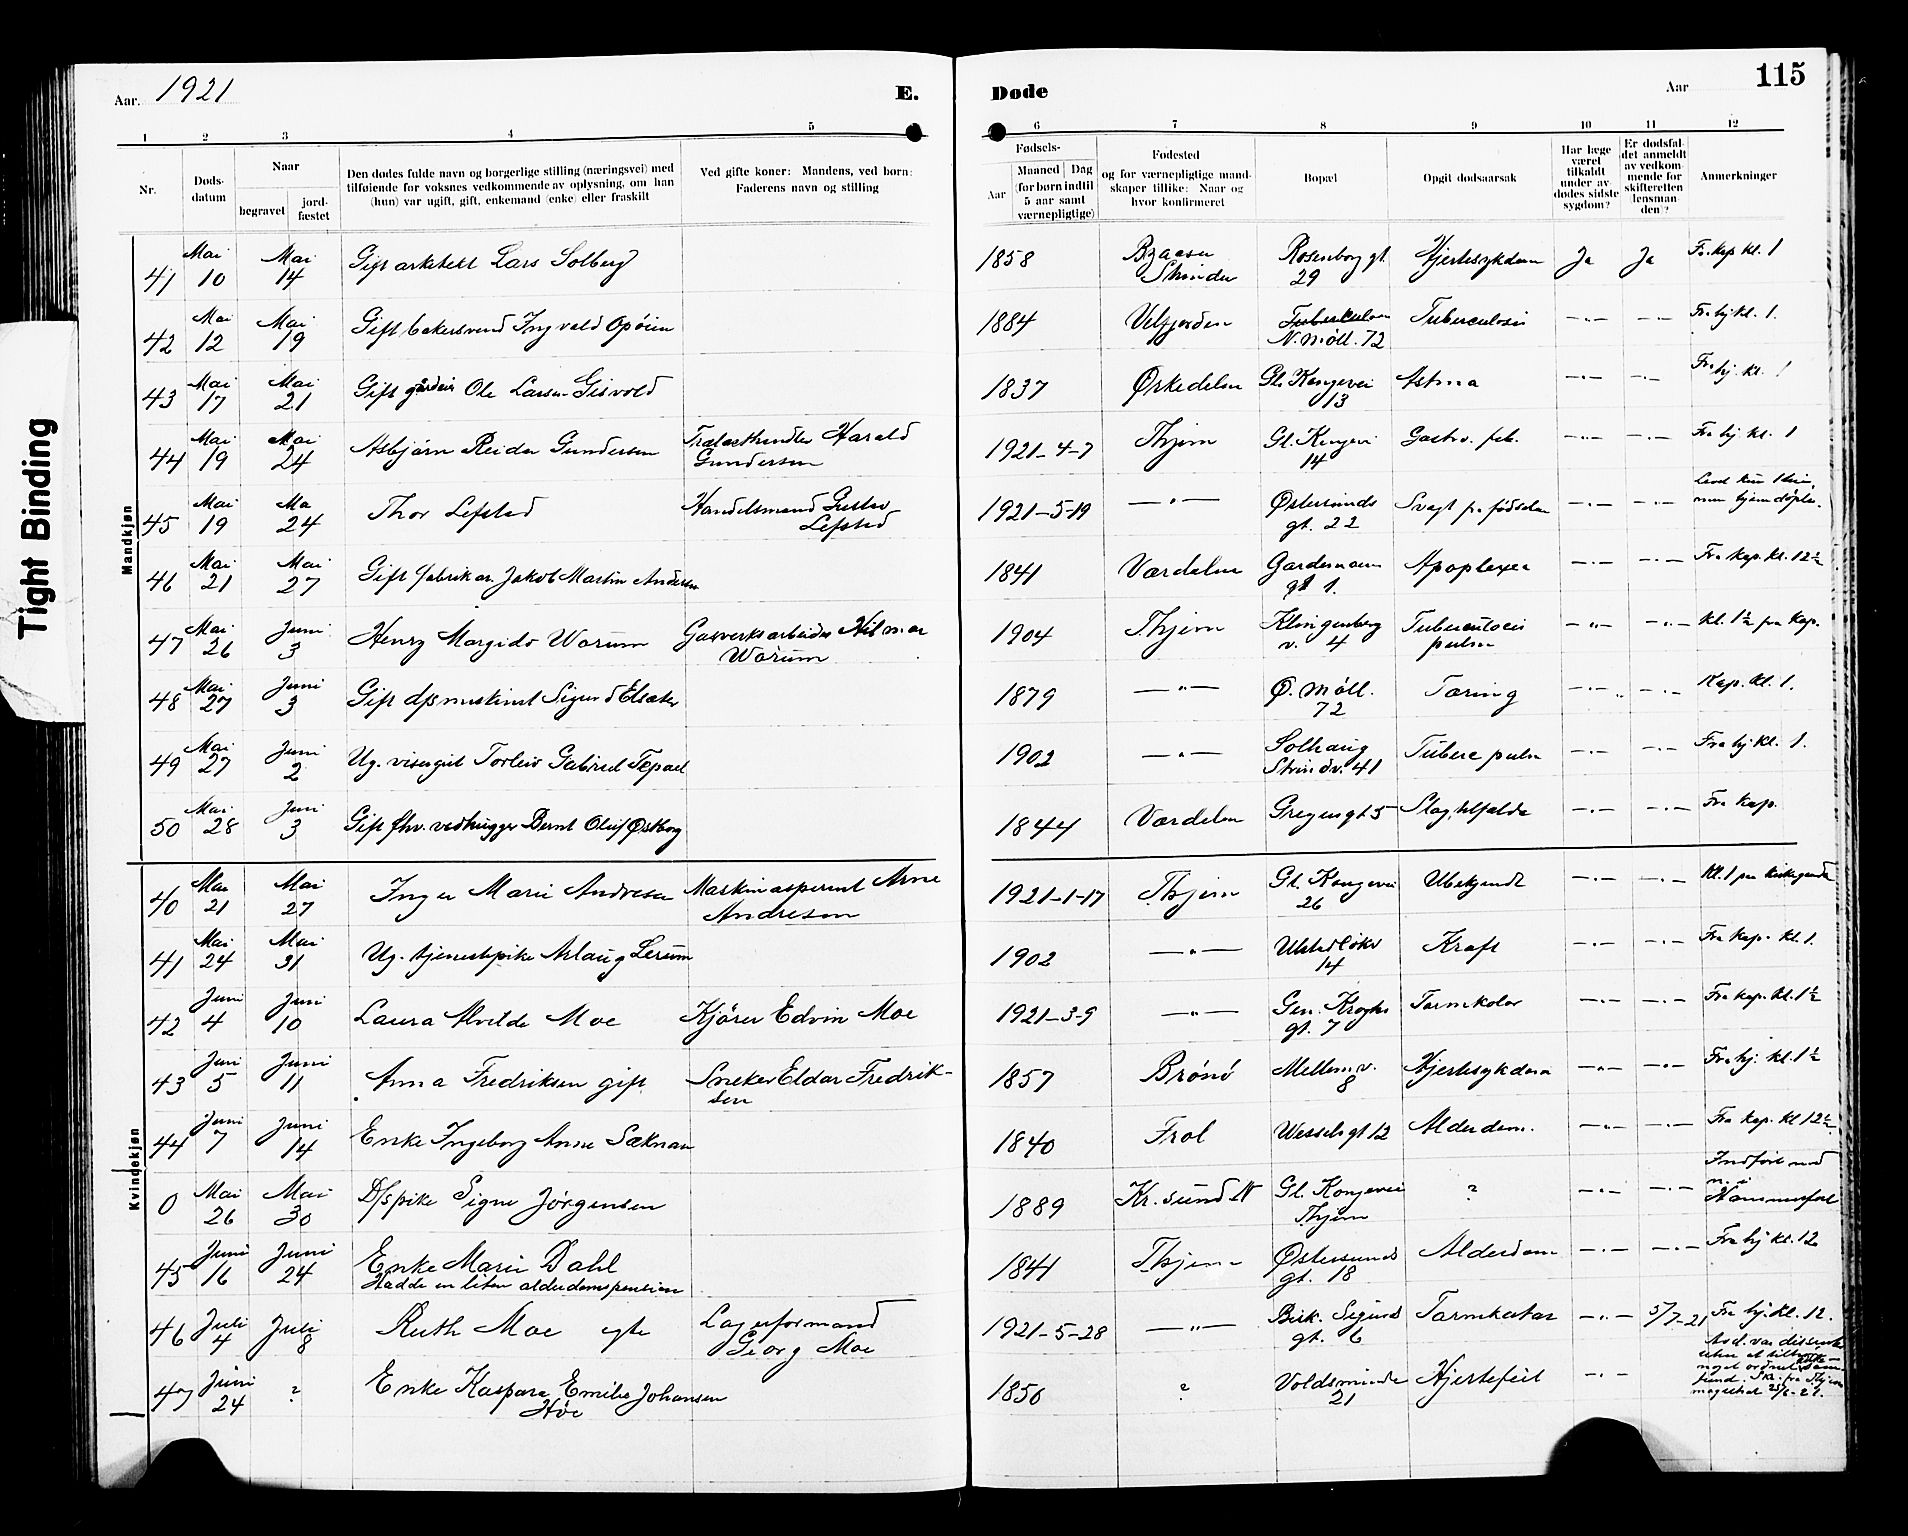 Tight Binding
Aar. 1921
E.
Døde
Aar
115
1 2 3 4 5 6 7 8 9 10 11 12
Nr.
Døds-
datum
Naar
begravet
jord-
fæstet
Den dødes fulde navn og borgerlige stilling (næringsvei) med
tilføiende for voksnes vedkommende av oplysning, om han
(hun) var ugift, gift, enkemand (enke) eller fraskilt
Ved gifte koner: Mandens, ved børn:
Faderens navn og stilling
Fødsels-
Aar
Maaned Dag
(for børn indtil
5 aar samt
værnepligtige)
Fødested
og for værnepligtige mand-
skaper tillike: Naar og
hvor konfirmeret
Bopæl
Opgit dødsaarsak
Har læge
været
tilkaldt
under av-
dødes sidste
sygdom?
Er dødsfal-
det anmeldt
av vedkom-
mende for
skifteretten
(lensman-
den)?
Anmerkninger
Mandkjøn
41 Mai 10 Mai 14 Gift arkitekt Lars Solberg 1858 Strinden Rosenborg gt. 29 Hjertesykdom Ja Ja Fr. kap kl. 1
42 Mai 12 Mai 19 Gift bakersvend Ingvald 1884 Velfjorden N. Møll. 72 Tuberculosis —"— —"— Fra hj. kl. 1.
43 Mai 17 Mai 21 Gift Ole Larsen Gisvold 1837 Ørkedalen Gl. Kongevei 13 Astma —"— —"— Fra hj. kl. 1
44 Mai 19 Mai 24 Asbjørn Reidar Gundersen Trælasthandler Harald Gundersen 1921-4-7 Thjem Gl. Kongevei 14 Gastro. —"— —"— Fra hj kl. 1
45 Mai 19 Ma 24 Thor Lefstad Handelsmand Gustav Lefstad 1921-5-19 —"— Østersunds gt. 22 Svagt fra fødselen —"— —"— hjemdøpt.
46 Mai 21 Mai 27 Gift fabrikar. Jakob Martin Andersen 1841 Værdalen gt 1. —"— —"— Fra kap. kl. 12½
47 Mai 26 Juni 3 Henry Margido Warum Gasverksarbeider Hilmar Warum 1904 Thjem Klingenberg v. 4 Tuberculosis pulm —"— —"— Kl. 1½ fra kap.
48 Mai 27 Juni 3 Gift d/s maskinist Sigurd 1879 —"— Ø. Møll. 72 Tæring —"— —"— Kap. kl. 1.
49 Mai 27 Juni 2 Ug. visergut Torleiv Gabriel 1902 —"— Solhaug Strindv. 41 Tuberc pulm —"— —"— Fra hj kl. 1.
50 Mai 28 Juni 3 Gift fhv. vedhugger Bernt Oluf Østborg 1844 Værdalen —"— —"— Fra kap.
Kvindekjøn
40 Mai 21 Mai 27 Inger Marie Andresen Maskinasperent Arne Andresen 1921-1-17 Thjem Gl. Kongevei 26 Ubekjendt —"— —"—
41 Mai 24 Mai 31 Ug. tjenestepike Aslaug Lerum 1902 —"— 14 Kræft —"— —"— Fra kap. kl. 1.
42 Juni 4 Juni 10 Laura Alvilde Moe Kjører Edvin Moe 1921-3-9 —"— Gen. Kroghs gt. 7 —"— —"— Fra kap. kl. 1½
43 Juni 5 Juni 11 Anna Fredriksen gift Sneker Eldar Fredrik-
sen 1857 Brønø Mellemv. 8 Hjertesykdom —"— —"— Fra hj. kl. 1½
44 Juni 7 Juni 14 Enke Ingeborg Anne 1840 Frol Wesselsgt 12 Alderdom. —"— —"— Fra kap. kl 12½
0 Mai 26 Mai 30 D/spike Signe Jørgensen 1889 Kr. sund N Gl. Kongevei Thjem ? —"— —"— Indført Hammerfest
45 Juni 16 Juni 24 Enke Marie Dahl
Hadde en liten alderdomspension 1841 Thjem Østersunds gt. 18 Alderdom —"— —"— Fra hj kl. 12
46 Juli 4 Juli 8 Ruth Moe egte Lagerformand
Georg Moe 1921-5-28 —"— Birk. Sigurds gt. 6 Tarmkatar —"— 5/7-21 Fra hj. kl. 12.
47 Juni 24 ? Enke Kaspara Emilie Johansen
Høe 1850 ? Voldsminde 21 Hjertefeil —"—